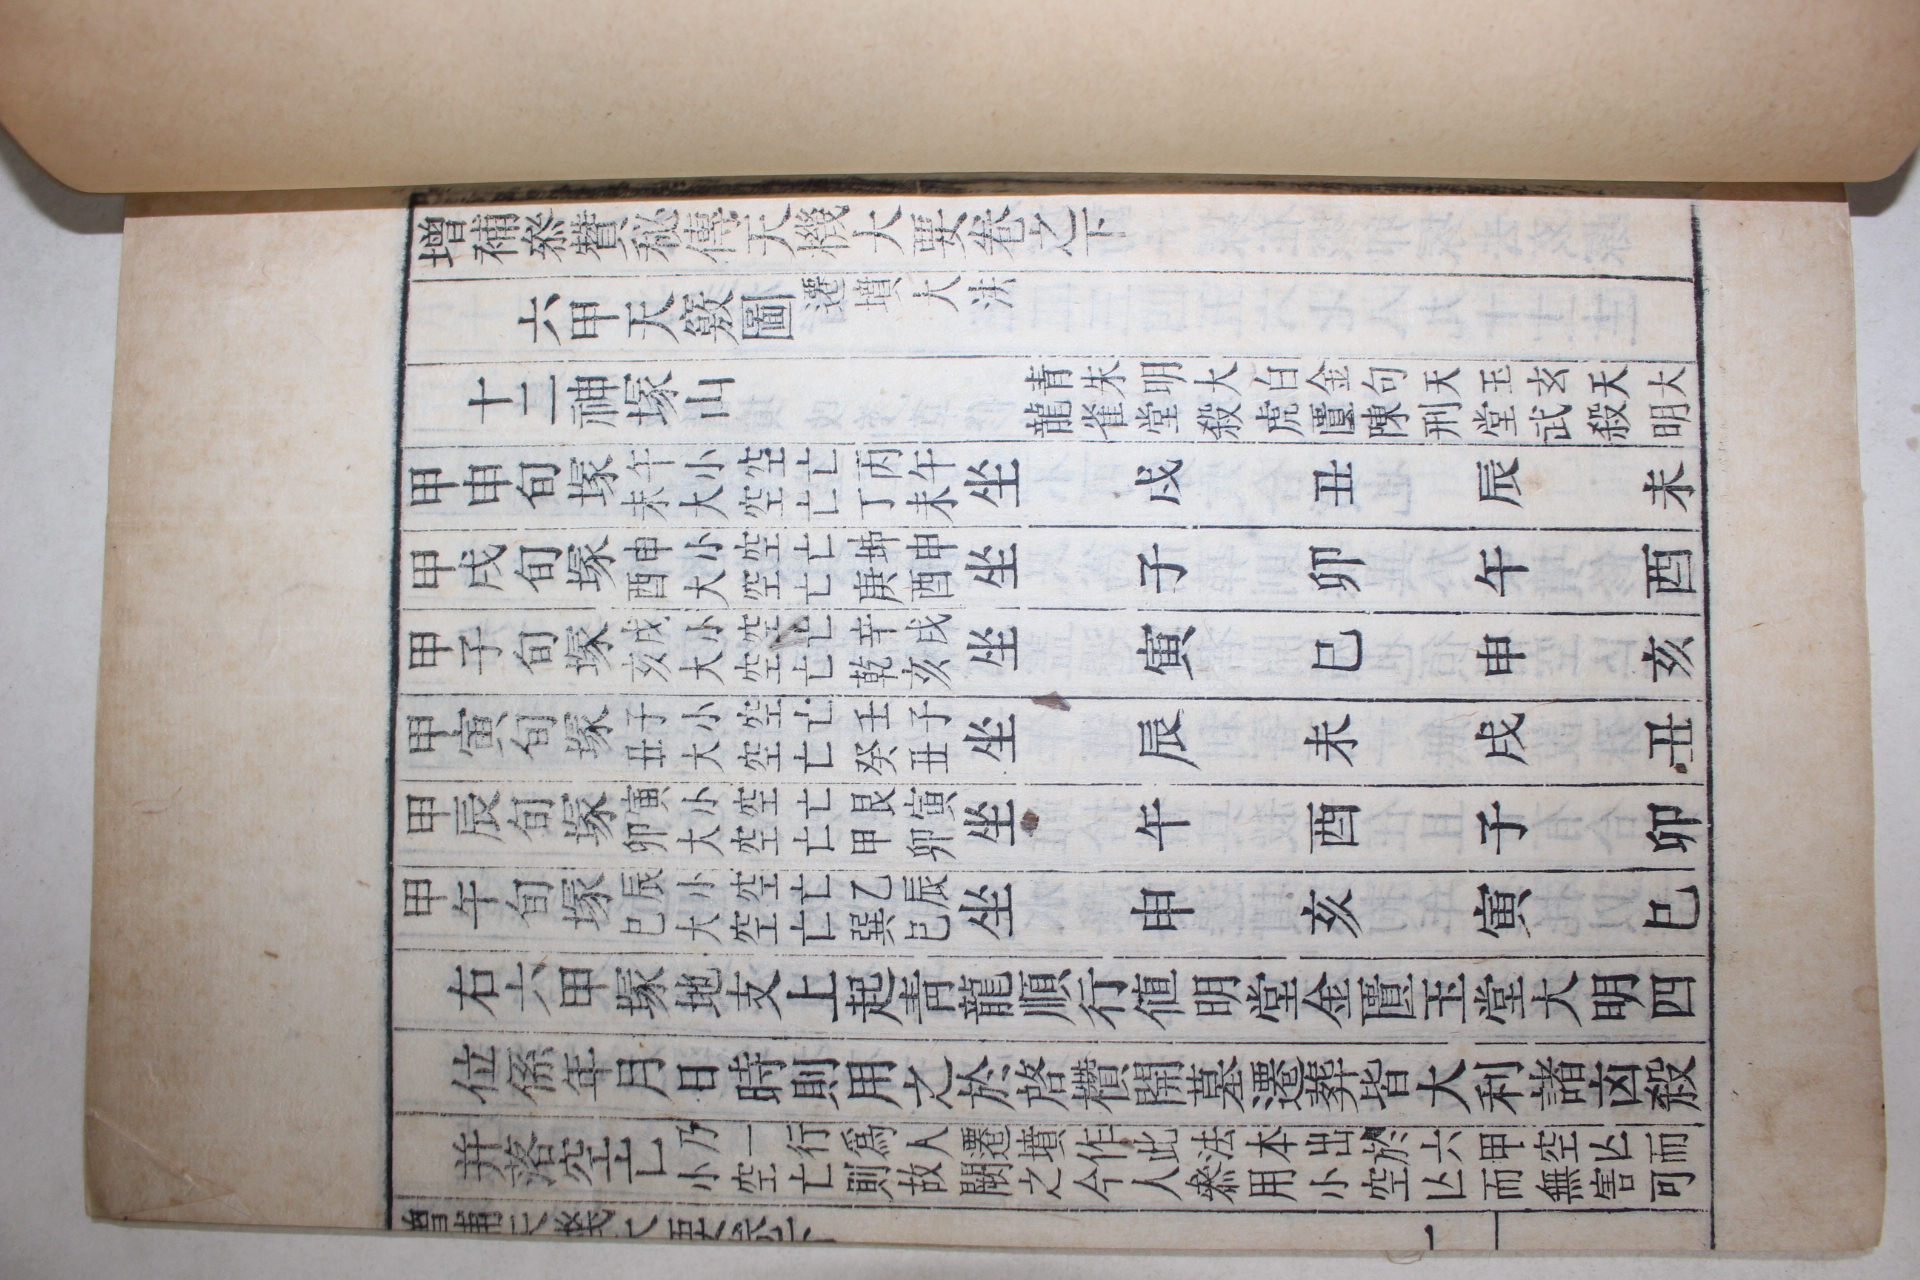 增補叅贊秘傳天機大要卷之下
六甲天竅圖 遷墳大法
十二神塚山 青朱明大白金句天玉玄天大
龍雀堂殺虎匱陳刑堂武殺明
甲申旬塚 午小空亡丙午
未大空亡丁未 坐 戌 丑 辰 未
甲戌旬塚 申小空亡坤申
酉大空亡庚酉 坐 子 卯 午 酉
甲子旬塚 戌小空亡辛戌
亥大空亡乾亥 坐 寅 巳 申 亥
甲寅旬塚 子小空亡壬子
丑大空亡癸丑 坐 辰 未 戌 丑
甲辰旬塚 寅小空亡艮寅
卯大空亡甲卯 坐 午 酉 子 卯
甲午旬塚 辰小空亡乙辰
巳大空亡巽巳 坐 申 亥 寅 巳
右六甲塚地支上起靑龍順行値明堂金匱玉堂大明四
位係年月日時則用之於啓欑開墓遷葬皆大利諸凶殺
并落空亡 乃一行爲人遷墳作此法本出於六甲空亾而
小空亡則故闕之今人叅用小空亾而無害可
增補天機大要卷下 一